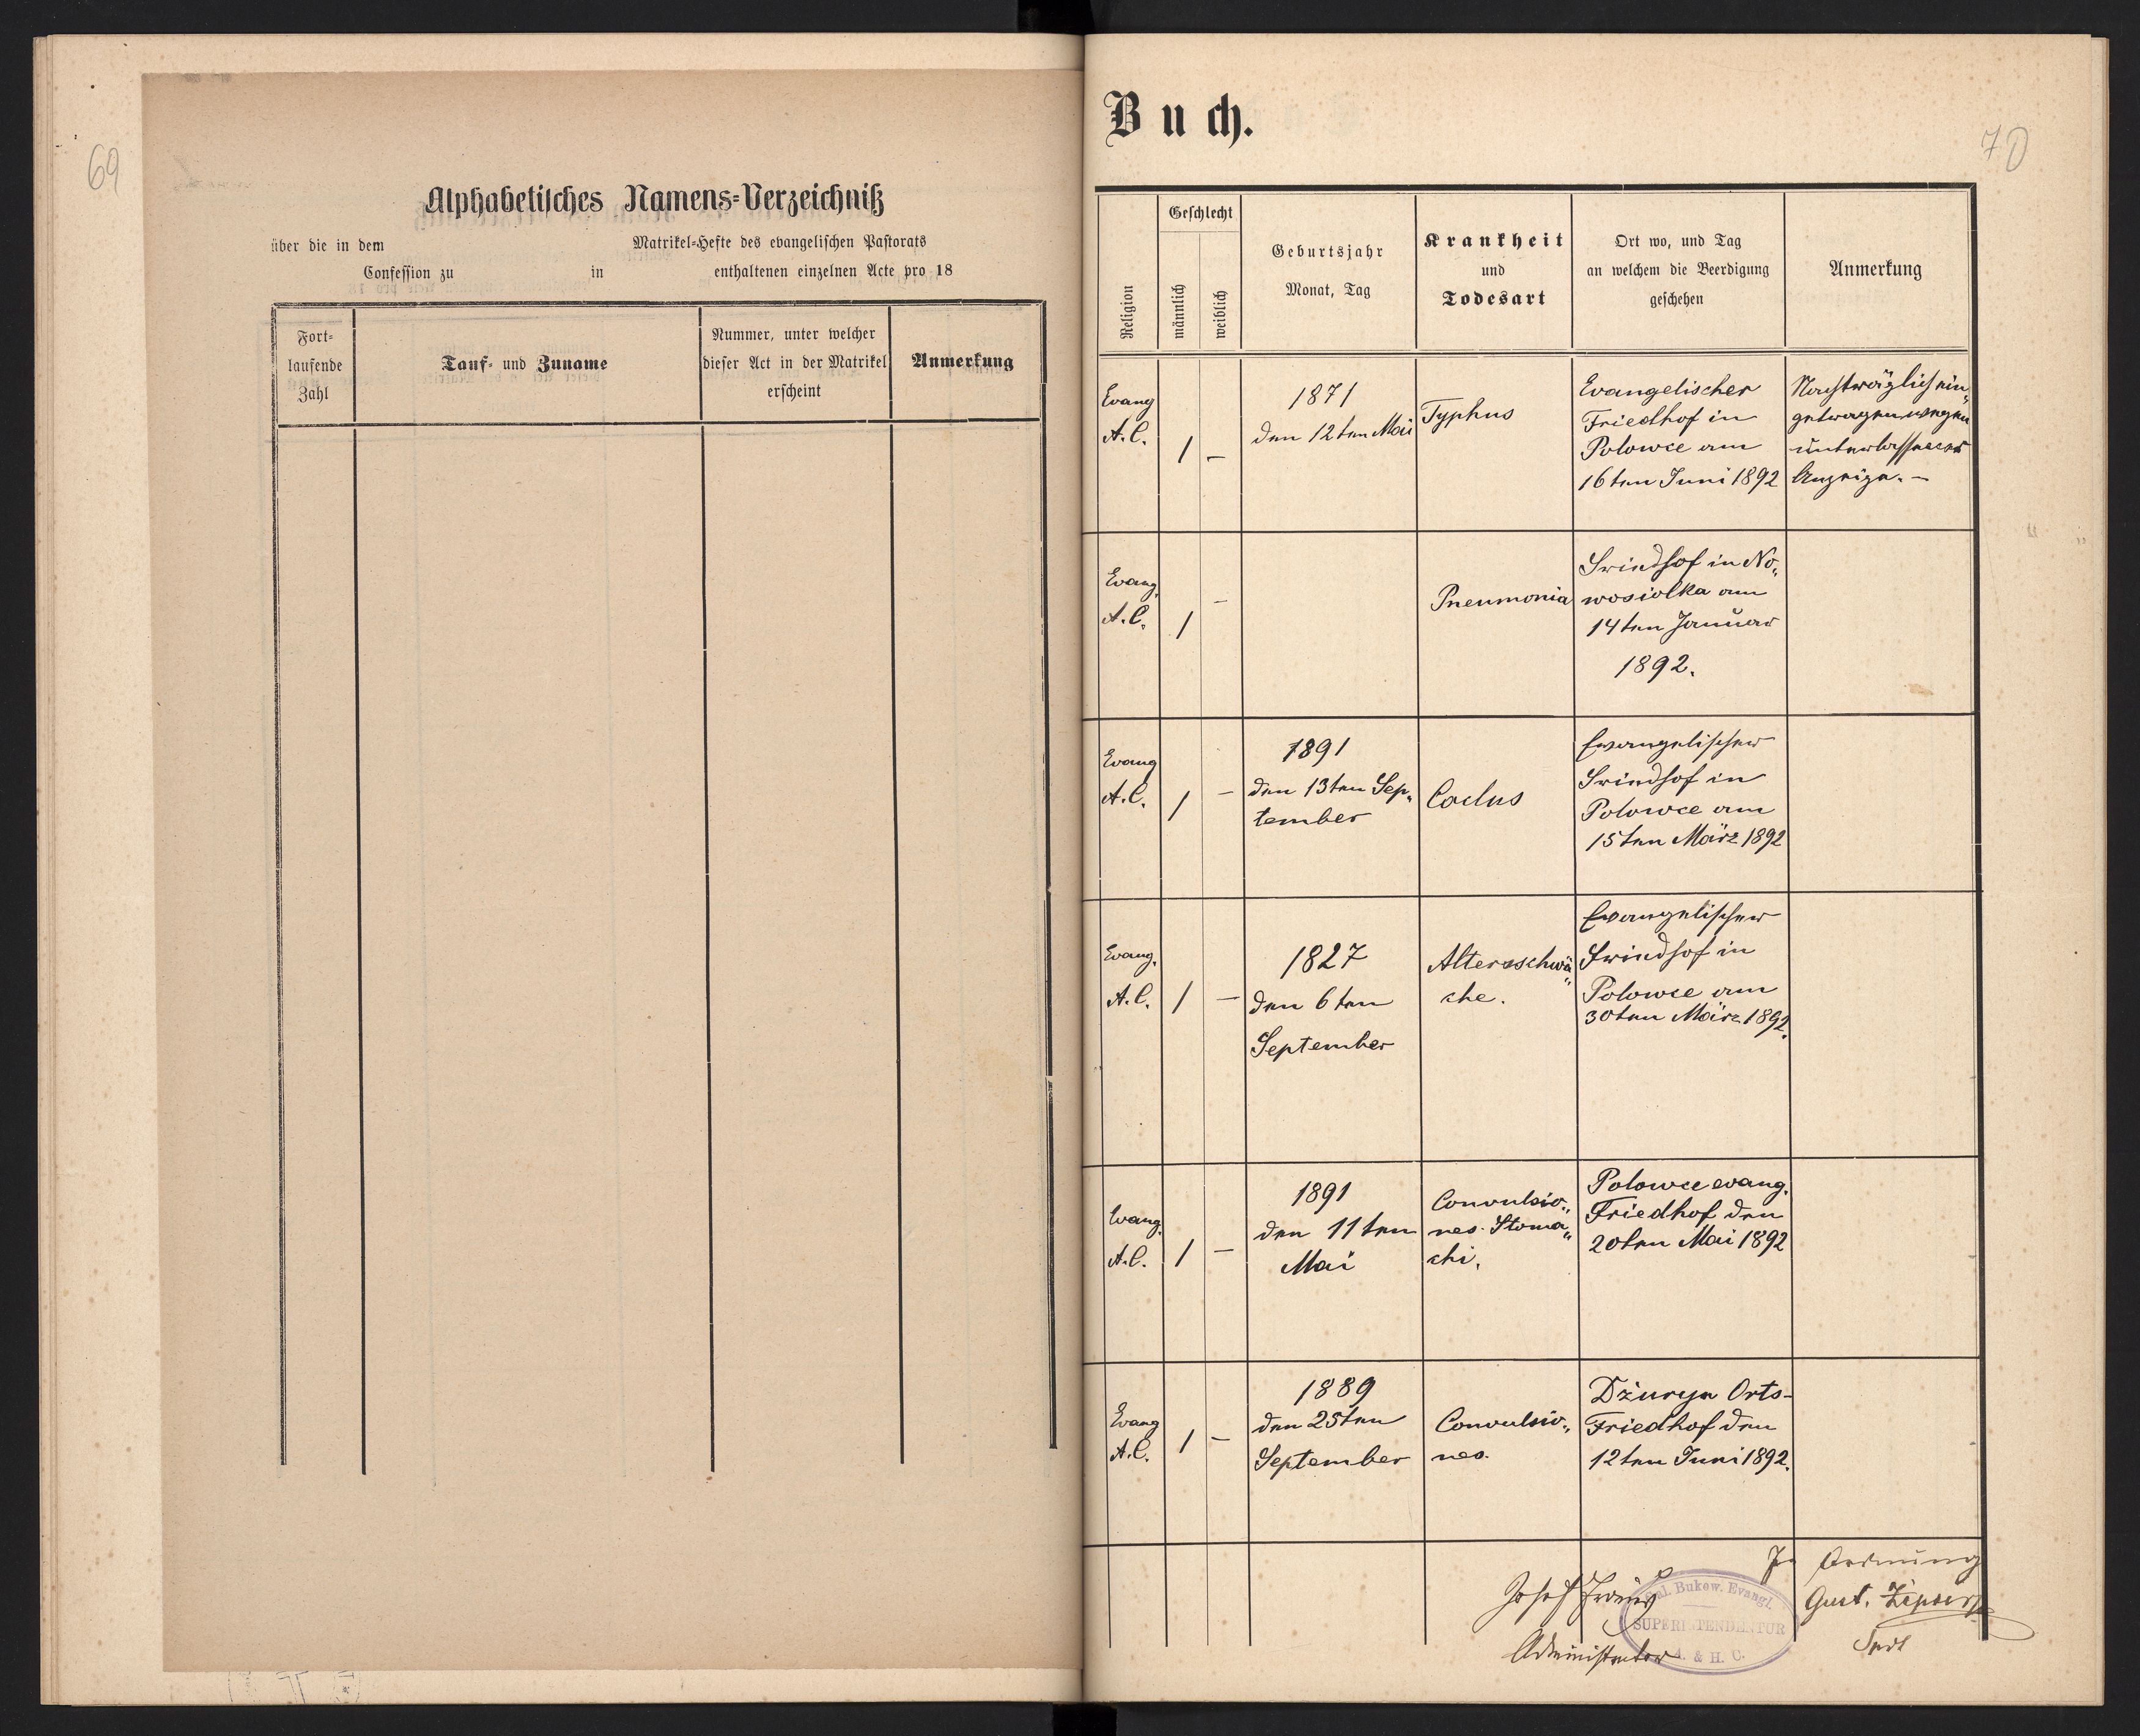 69
Alphabetisches Namens-Verzeichniß
über die in dem Matrikel-Hefte des evangelischen Pastorats
Confession zu in enthaltenen einzelnen Acte pro 18
Fort-
laufende
Zahl
Tauf- und Zuname
Nummer, unter welcher
dieser Act in der Matrikel
erscheint
Anmerkung
Buch.
70
Religion
Geschlecht
männlich
weiblich
Geburtsjahr
Monat, Tag
Krankheit
und
Todesart
Ort wo, und Tag
an welchem die Beerdigung
geschehen
Anmerkung
Evang
A.C.
1
–
1871
den 12ten Mai
Typhus
Evangelischer
Friedhof in
Polowce am
16ten Juni 1892
Nachträglich ein„
getragen wegen
unterlassener
Anzeige. –
Evang.
A.C.
1
–
Pneumonia
Friedhof in No„
wosiolka am
14ten Januar
1892.
Evang
A.C.
1
–
1891
den 13ten Sep„
tember
Evangelischer
Friedhof in
Polowce am
15ten März 1892
Evang.
A.C.
1
–
1827
den 6ten
September
Altersschwä„
che.
Evangelischer
Friedhof in
Polowce am
30ten März 1892.
Evang.
A.C.
1
–
1891
den 11ten
Mai
Convulsio„
nes Stoma„
chi.
Polowce evang.
Friedhof den
20ten Mai 1892
Evang
A.C.
1
–
1889
den 25ten
September
Convulsio„
nes.
Dżuryn Orts-
Friedhof den
12ten Juni 1892.
Josef
Administrator
Gal. Bukow. Evangl.
SUPERINTENDENTUR
A. & H. C.
In Ordnung
Gust.